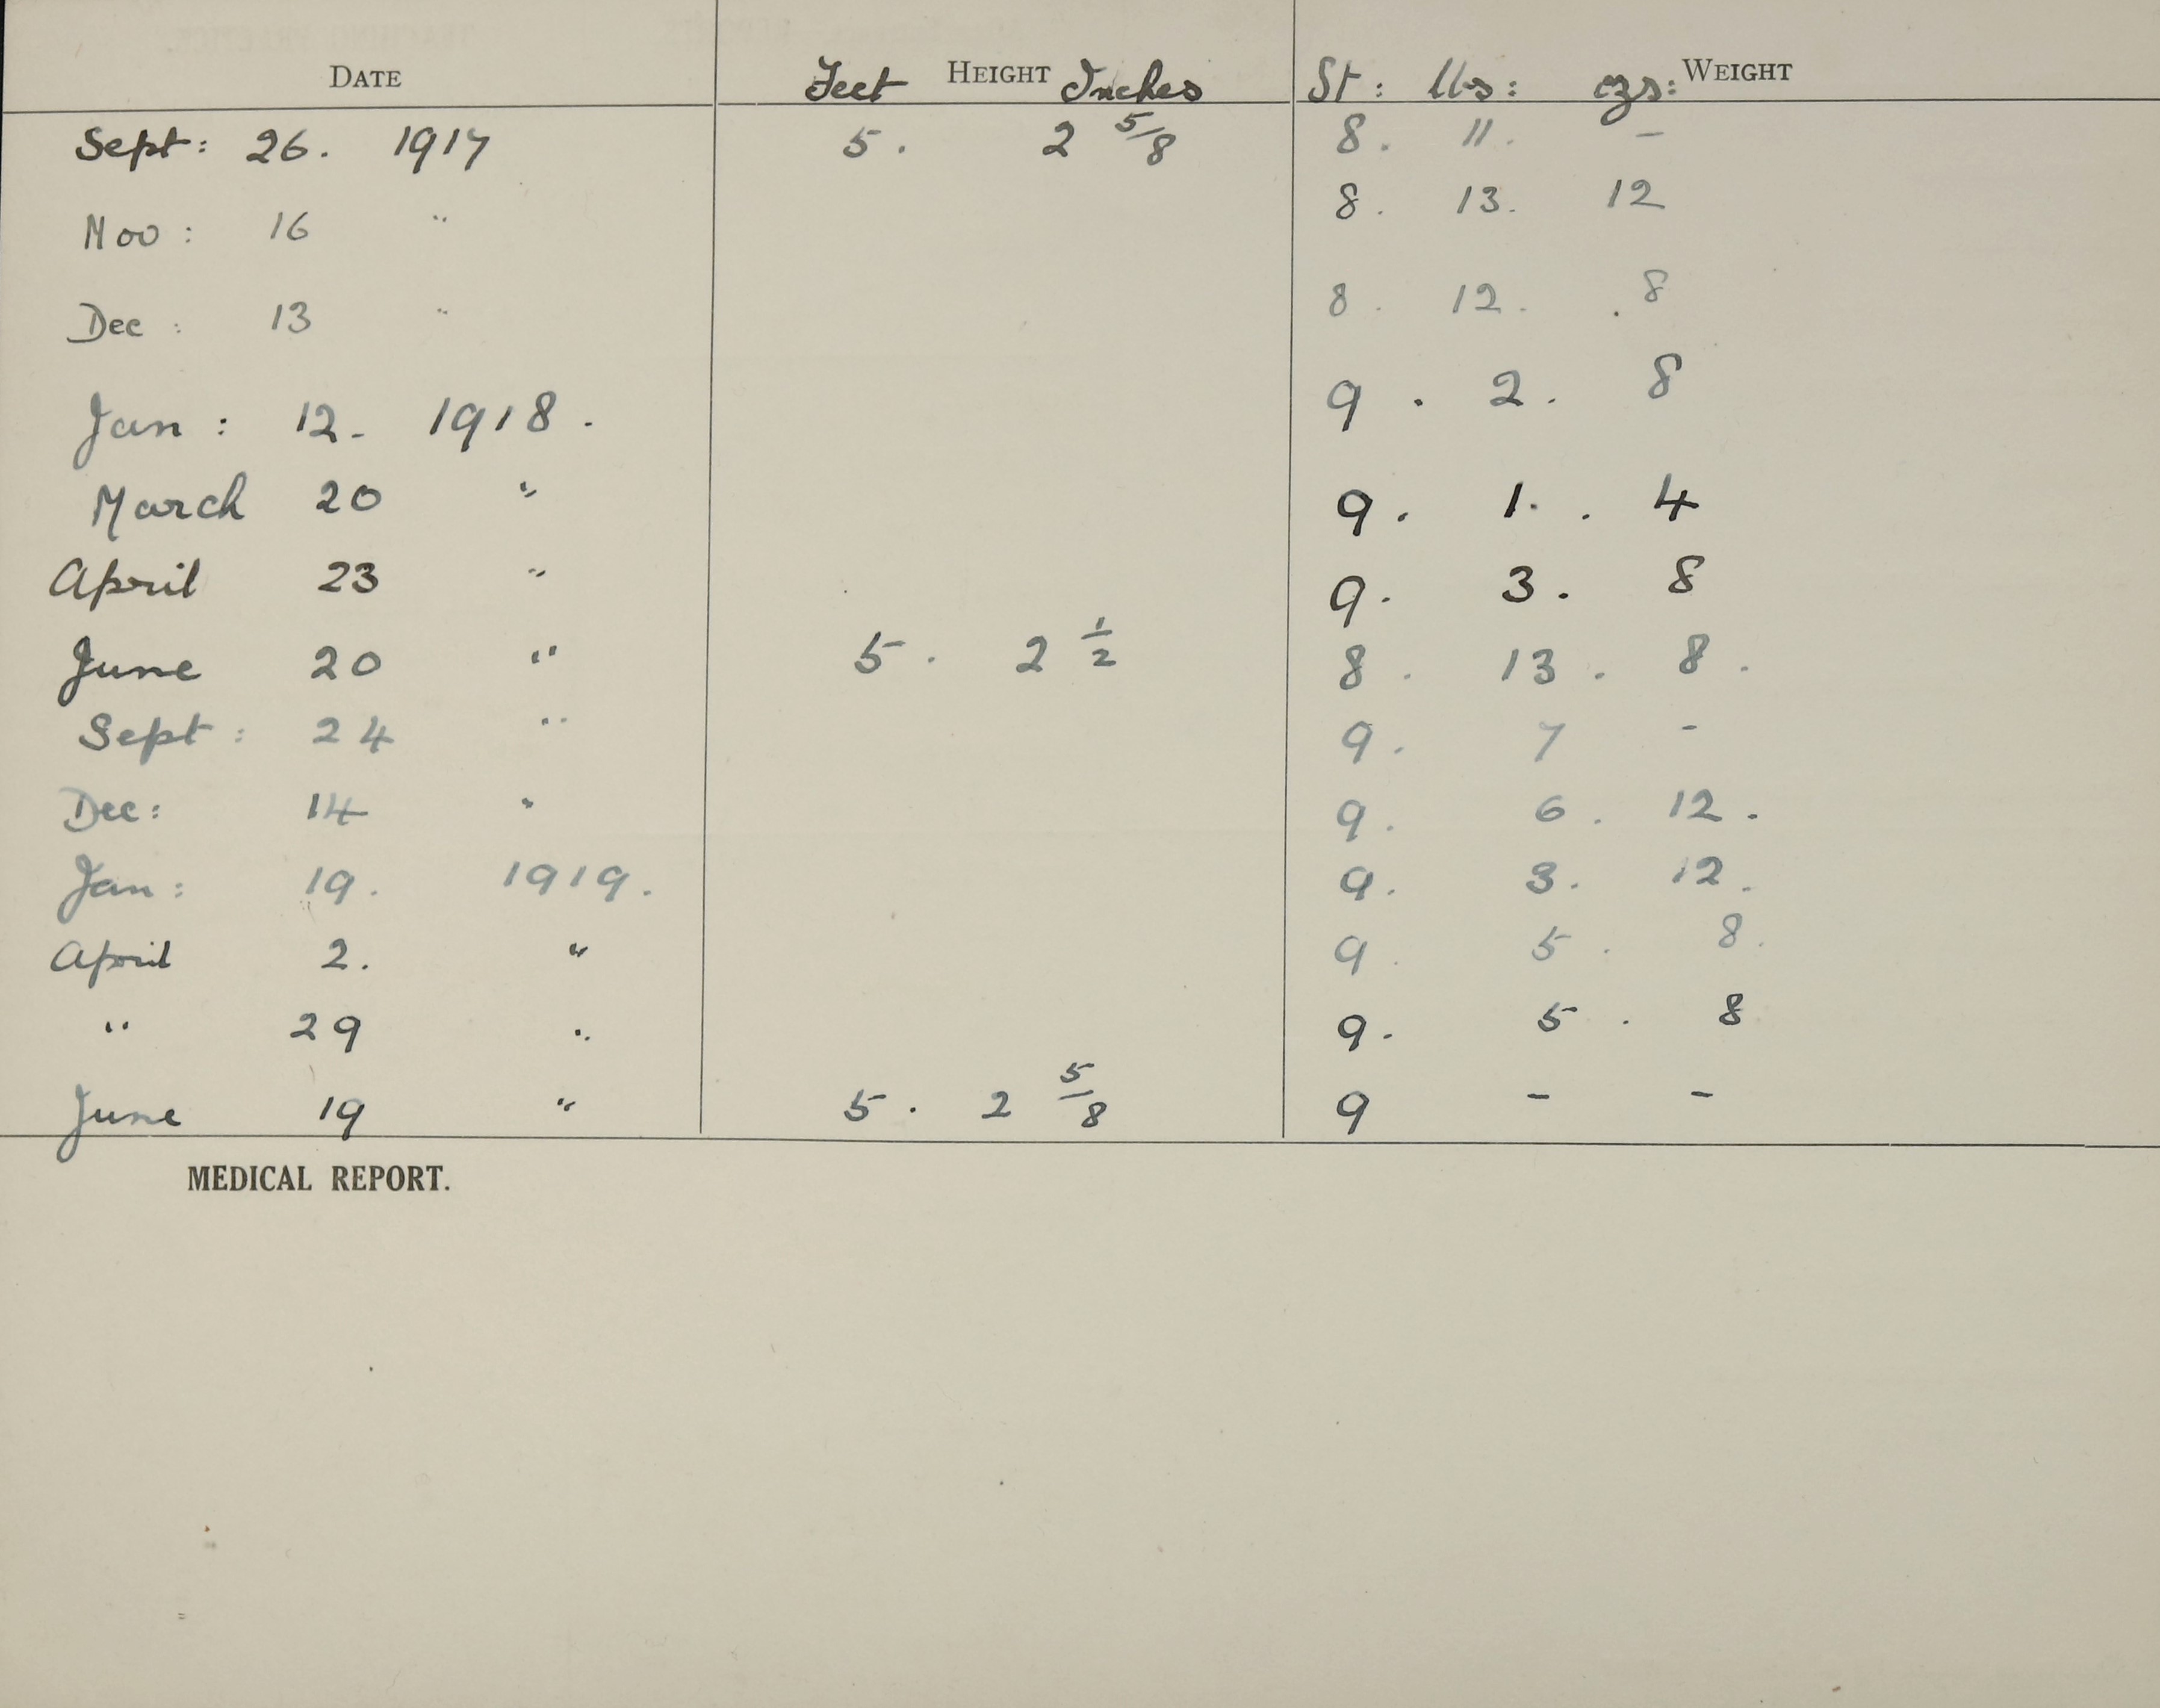 DATE Feet HEIGHT Inches St: lbs: ozs: WEIGHT
Sept: 26. 1917 5. 2 5/8 8. 11. -
Nov: 16 " 8. 13. 12
Dec: 13 " 8. 12. 8
Jan: 12. 1918. 9. 2. 8
March 20 " 9. 1. 4
April 23 " 9. 3. 8
June 20 " 5. 2 1/2 8. 13. 8.
Sept: 24 " 9. 7 -
Dec: 14 " 9. 6. 12.
Jan: 19. 1919. 9. 3. 12.
April 2. " 9. 5. 8.
" 29 " 9. 5. 8
June 19 " 5. 2 5/8 9 - -
MEDICAL REPORT.